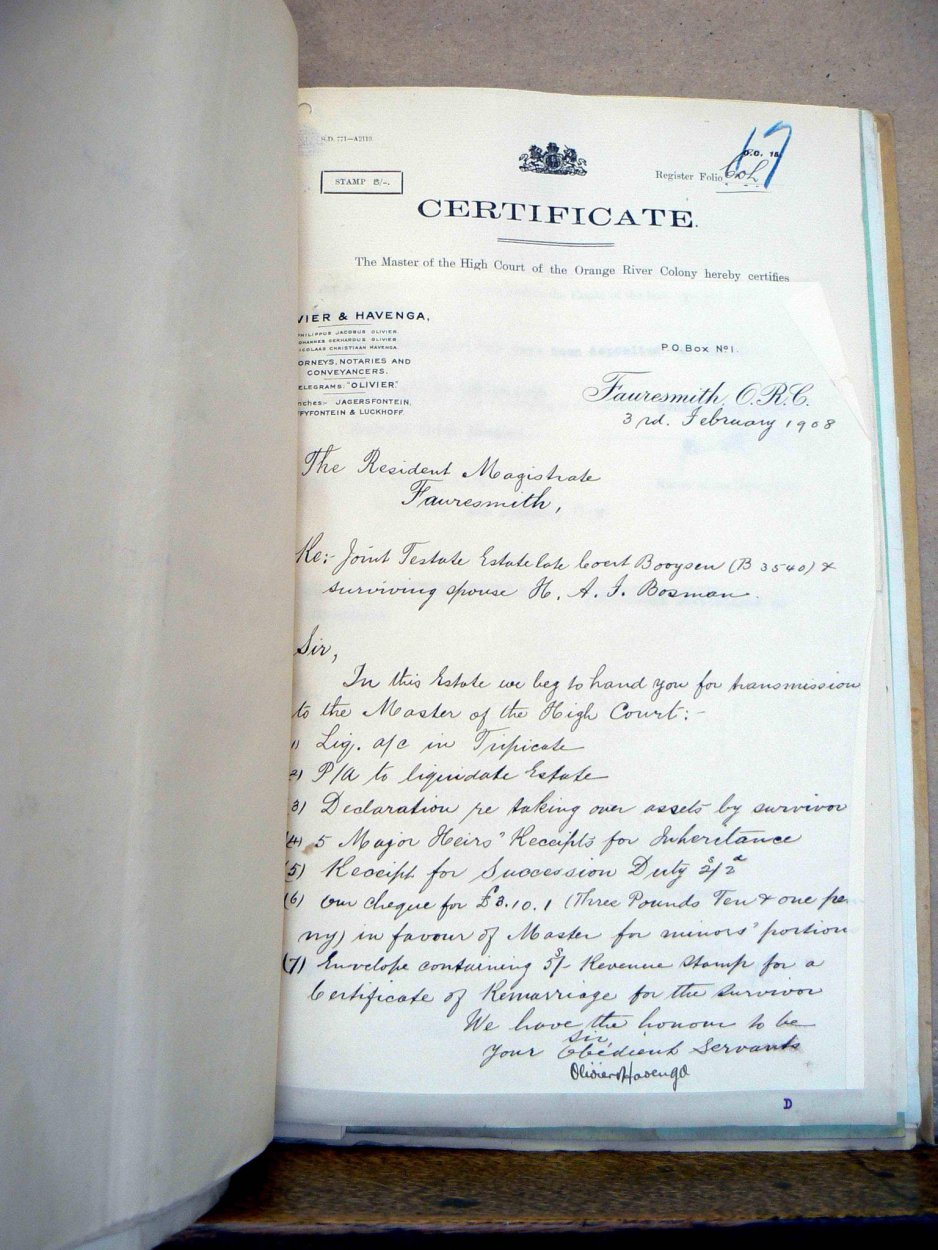 S.D. 771—A2119
STAMP 5/-.
O.C. 15
17
Register Folio
CERTIFICATE.
The Master of the High Court of the Orange River Colony hereby certifies
VIER & HAVENGA,
PHILIPPUS JACOBUS OLIVIER.
OHANNES GERHARDUS OLIVIER.
ICOLAAS CHRISTIAAN HAVENGA.
ORNEYS, NOTARIES AND
CONVEYANCERS.
ELEGRAMS: "OLIVIER."
nches:- JAGERSFONTEIN,
FFYFONTEIN & LUCKHOFF.
P.O. Box No 1.
Fauresmith, O.R.C.
3rd. February 1908
The Resident Magistrate
Fauresmith,
Re:- Joint Testate Estate late Coert Booysen (B 3540) &
surviving spouse H. A. J. Bosman.
Sir,
In this Estate we beg to hand you for transmission
to the Master of the High Court:-
1) Liq. a/c in Triplicate
2) P/A to liquidate Estate
3) Declaration re taking over assets by survivor
(4) 5 Major Heirs' Receipts for Inheritance
(5) Receipt for Succession Duty 2s/2d
(6) Our cheque for £3.10.1 (Three Pounds Ten & one pe
ny) in favour of Master for minors' portion
(7) Envelope containing 5s/- Revenue stamp for a
Certificate of Remarriage for the survivor
We have the honour to be
Sir,
Your Obedient Servants
Olivier & Havenga
D